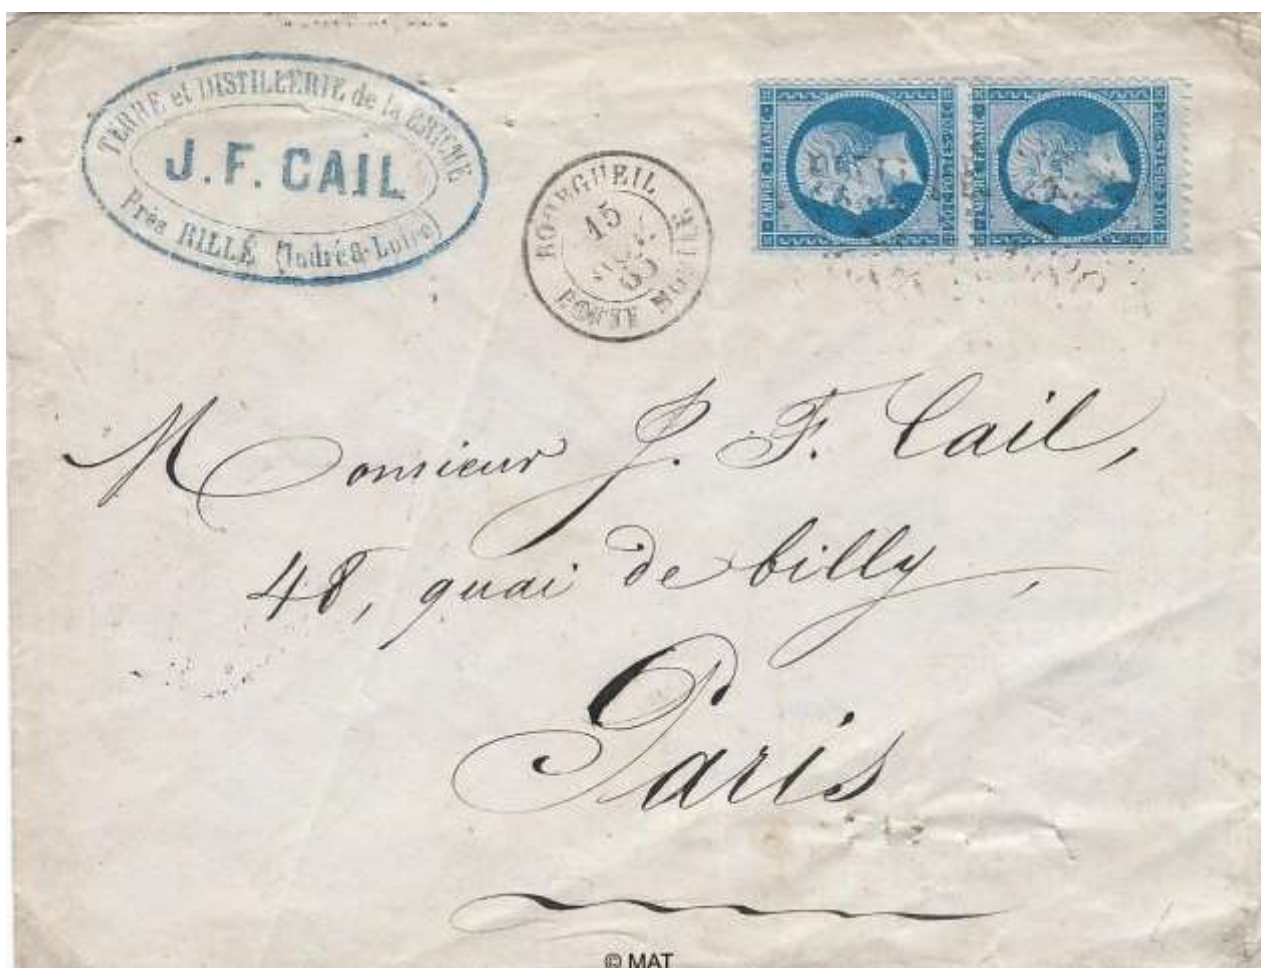 TERRE et DISTILLERIE de la BRICHE
J. F. CAIL
Près RILLÉ (Indre & Loire)
BOURGUEIL
15
POSTE MOBILE
EMPIRE FRANC.
20 C. POSTES 20 C.
EMPIRE FRANC.
20 C. POSTES 20 C.
Monsieur J. F. Cail,
48, quai de billy,
Paris
© MAT